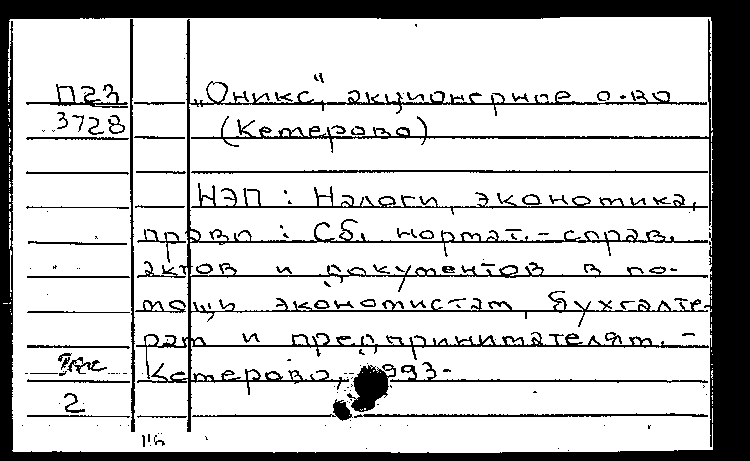 П23
3728
„Оникс", акционерное о-во
(Кемерово)
НЭП : Налоги, экономика,
право : Сб. нормат.-справ.
актов и документов в по-
мощь экономистам, бухгалте-
рам и предпринимателям. -
Кемерово, 1993-
2
116